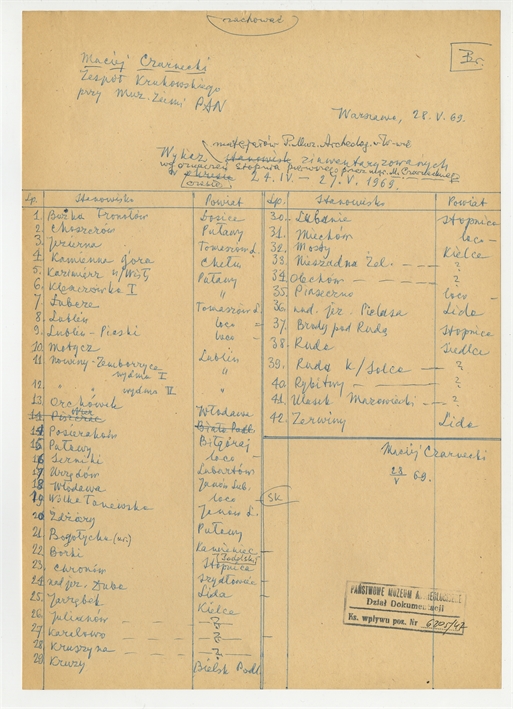 zachować
Br.
Maciej Czarnecki
Zespół Krakowskiego
przy Muz. Ziemi PAN
Warszawa, 28.V.69.
materjałów P. Muz. Archeolog. W-wie
Wykaz stanowisk zinwentaryzowanych
stopnia pierwszego przez mgr. M. Czarneckiego
w okresie
czasie 24.IV — 27.V.1969.
Lp. Stanowisko Powiat
1. Bożka Łosice
2. Choszczów Puławy
3. Jezierna Tomaszów L.
4. Kamienna Góra Chełm
5. Kazimierz n/Wisłą Puławy
6. Klemerówka I "
7. Łubcze Tomaszów L.
8. Lublin loco
9. Lublin - Piaski loco
10. Motycz Lublin
11. Nowiny-Zemborzyce wydma I "
12. " " wydma II "
13. Orchówek Włodawa
14. Biała Podl.
14. Biłgoraj
15. Puławy loco
16. Serniki Lubartów
17. Urzędów Janów Lub.
18. Włodawa loco
19. Wólka Janów L.
20. Żdżary Puławy
21. Kamieniec Podolski
22. Borki Stopnica
23. Chronów Szydłowiec
24. nad jez. Duba Lida
25. Jarząbek Kielce
26. Julianów — — — ?
27. Karolewo — — — ?
28. Kruszyna — — — ?
29. Kruzy Bielsk Podl.
Lp. Stanowisko Powiat
30. Lubanie Stopnica
31. Miechów loco
32. Mosty Kielce
33. Nieszadna — — ?
34. Olchów — — — ?
35. Piaseczno loco
36. nad. jez. Pielasa Lida
37. Brody pod Rudą Stopnica
38. Ruda Siedlce
39. Ruda k/Solca — — ?
40. Rybitwy — — — ?
41. Mazowiecki — ?
42. Żerwiny Lida
SK
Maciej Czarnecki
28/V 69.
PAŃSTWOWE MUZEUM ARCHEOLOGICZNE
Dział Dokumentacji
Ks. wpływu poz. Nr 6205/47